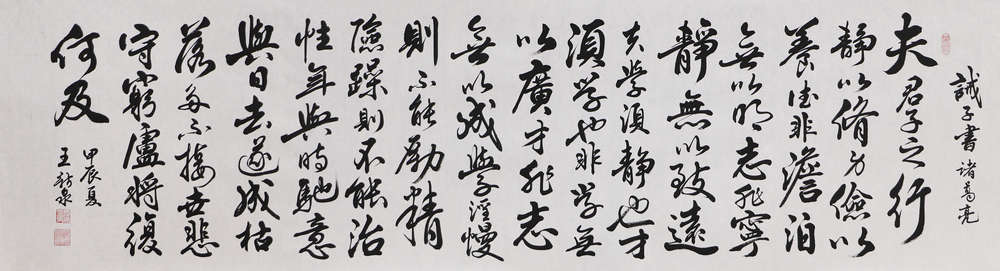 誡子書 諸葛亮
夫君子之行
靜以脩身儉以
養德非澹泊
無以明志非寧
靜無以致遠
夫學須靜也才
須學也非學無
以廣才非志
無以成學淫慢
則不能勵精
險躁則不能治
性年與時馳意
與日去遂成枯
落多不接世悲
守窮盧將復
何及
甲辰夏
王